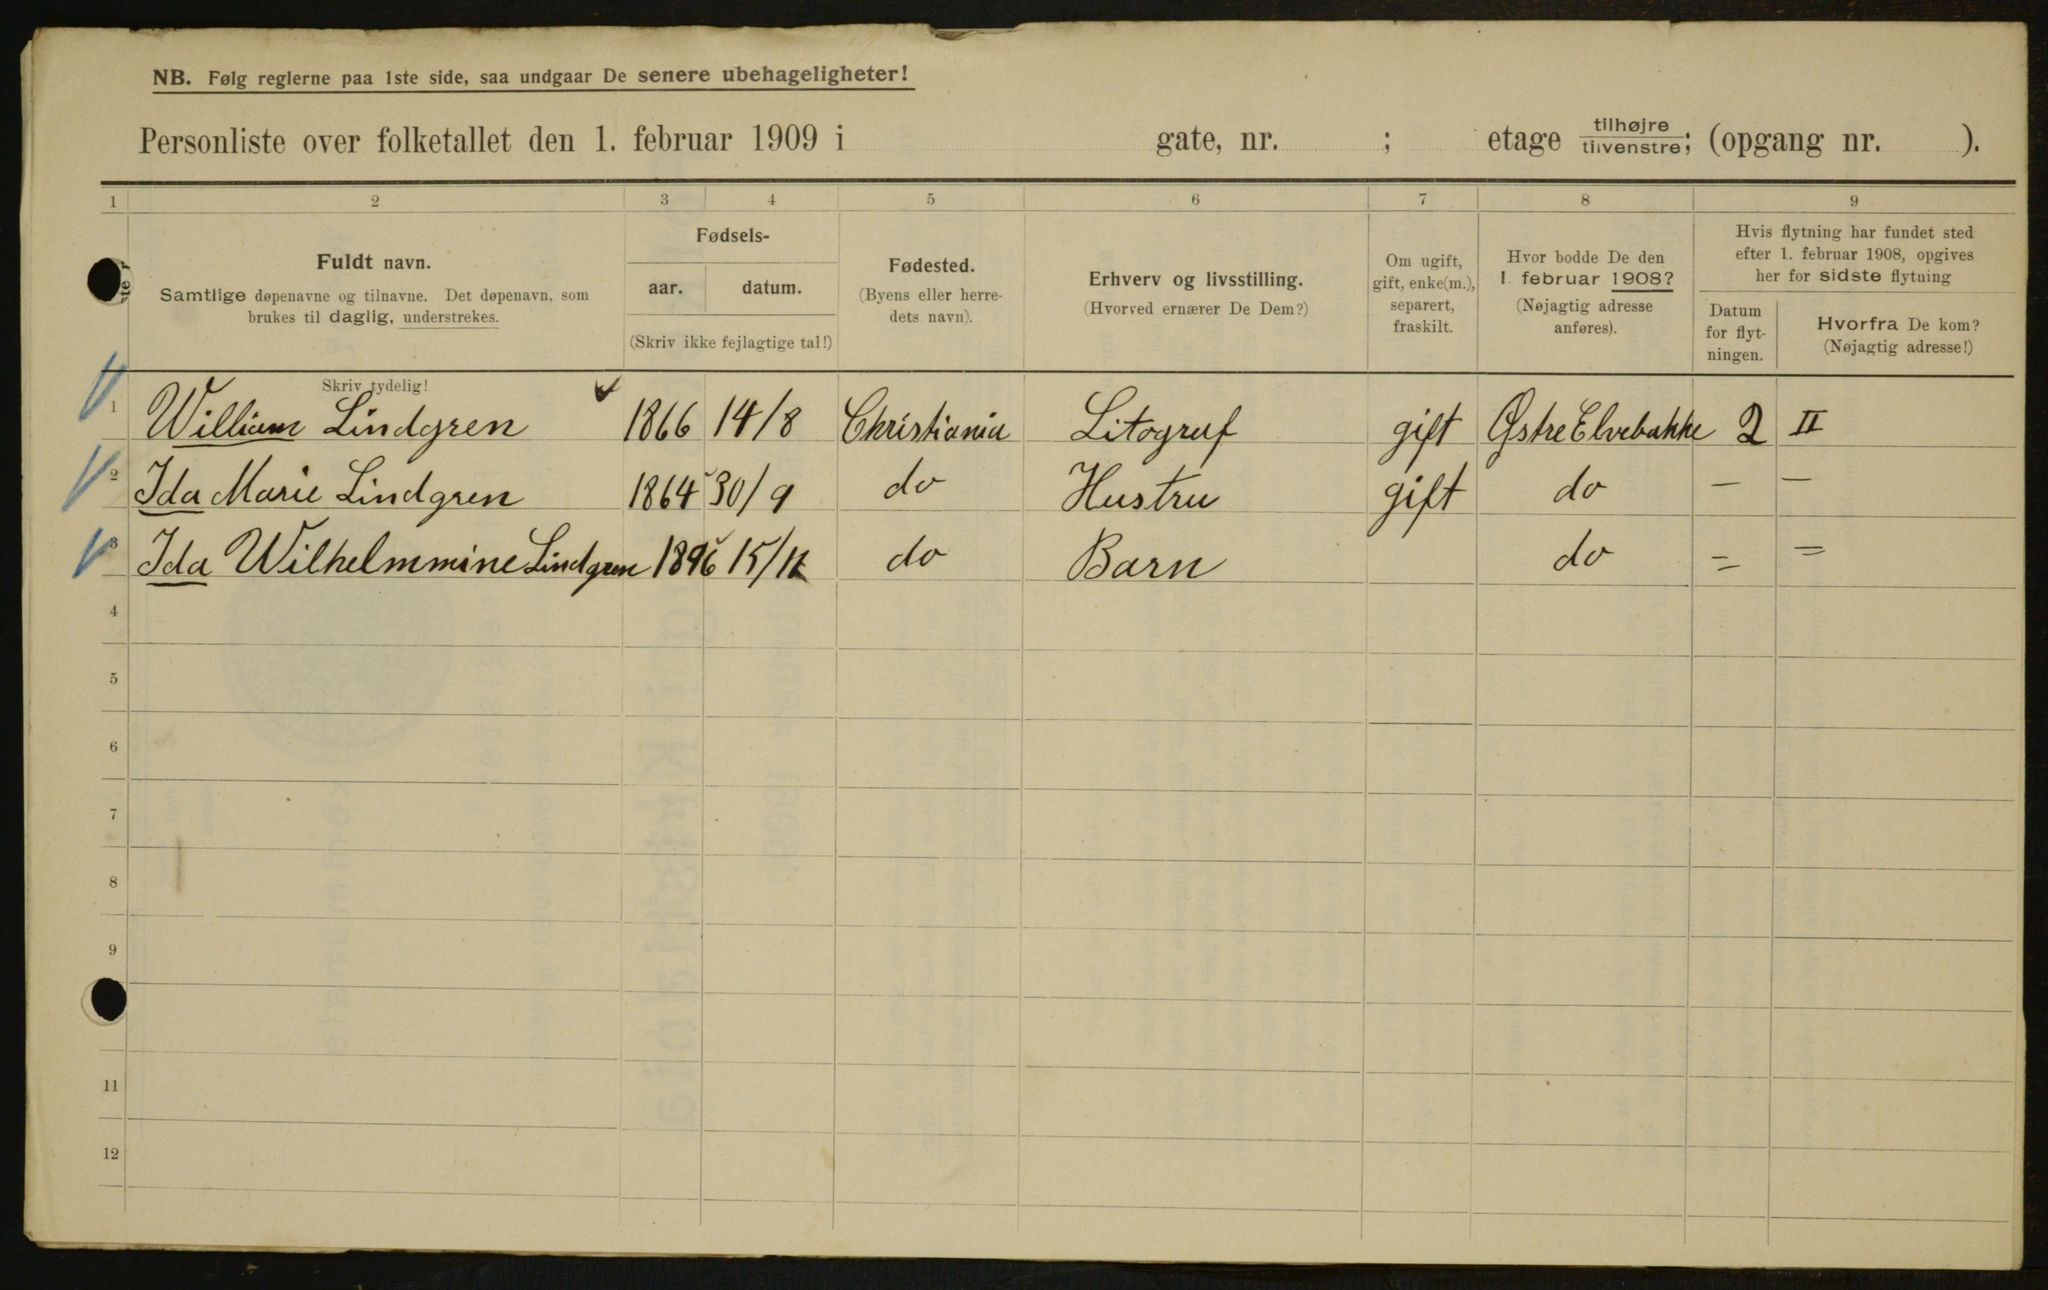 NB. Følg reglerne paa 1ste side, saa undgaar De senere ubehageligheter!
Personliste over folketallet den 1. februar 1909 i gate, nr. ; etage tilhøjre tilvenstre; (opgang nr. ).
1 2 3 4 5 6 7 8 9
Fuldt navn.
Samtlige døpenavne og tilnavne. Det døpenavn, som
brukes til daglig, understrekes.
Skriv tydelig!
Fødsels-
aar. datum.
(Skriv ikke fejlagtige tal!)
Fødested.
(Byens eller herre-
dets navn).
Erhverv og livsstilling.
(Hvorved ernærer De Dem?)
Om ugift,
gift, enke(m.),
separert,
fraskilt.
Hvor bodde De den
1. februar 1908?
(Nøjagtig adresse
anføres).
Hvis flytning har fundet sted
efter 1. februar 1908, opgives
her for sidste flytning
Datum
for flyt-
ningen.
Hvorfra De kom?
(Nøjagtig adresse!)
1 William Lindgren 1866 14/8 Christiania Litograf gift Østre Elvebakke 2 II
2 Ida Marie Lindgren 1864 30/9 do Hustru gift do — —
3 Ida Wilhelmmine Lindgren 1896 15/11 do Barn do = =
4
5
6
7
8
9
11
12